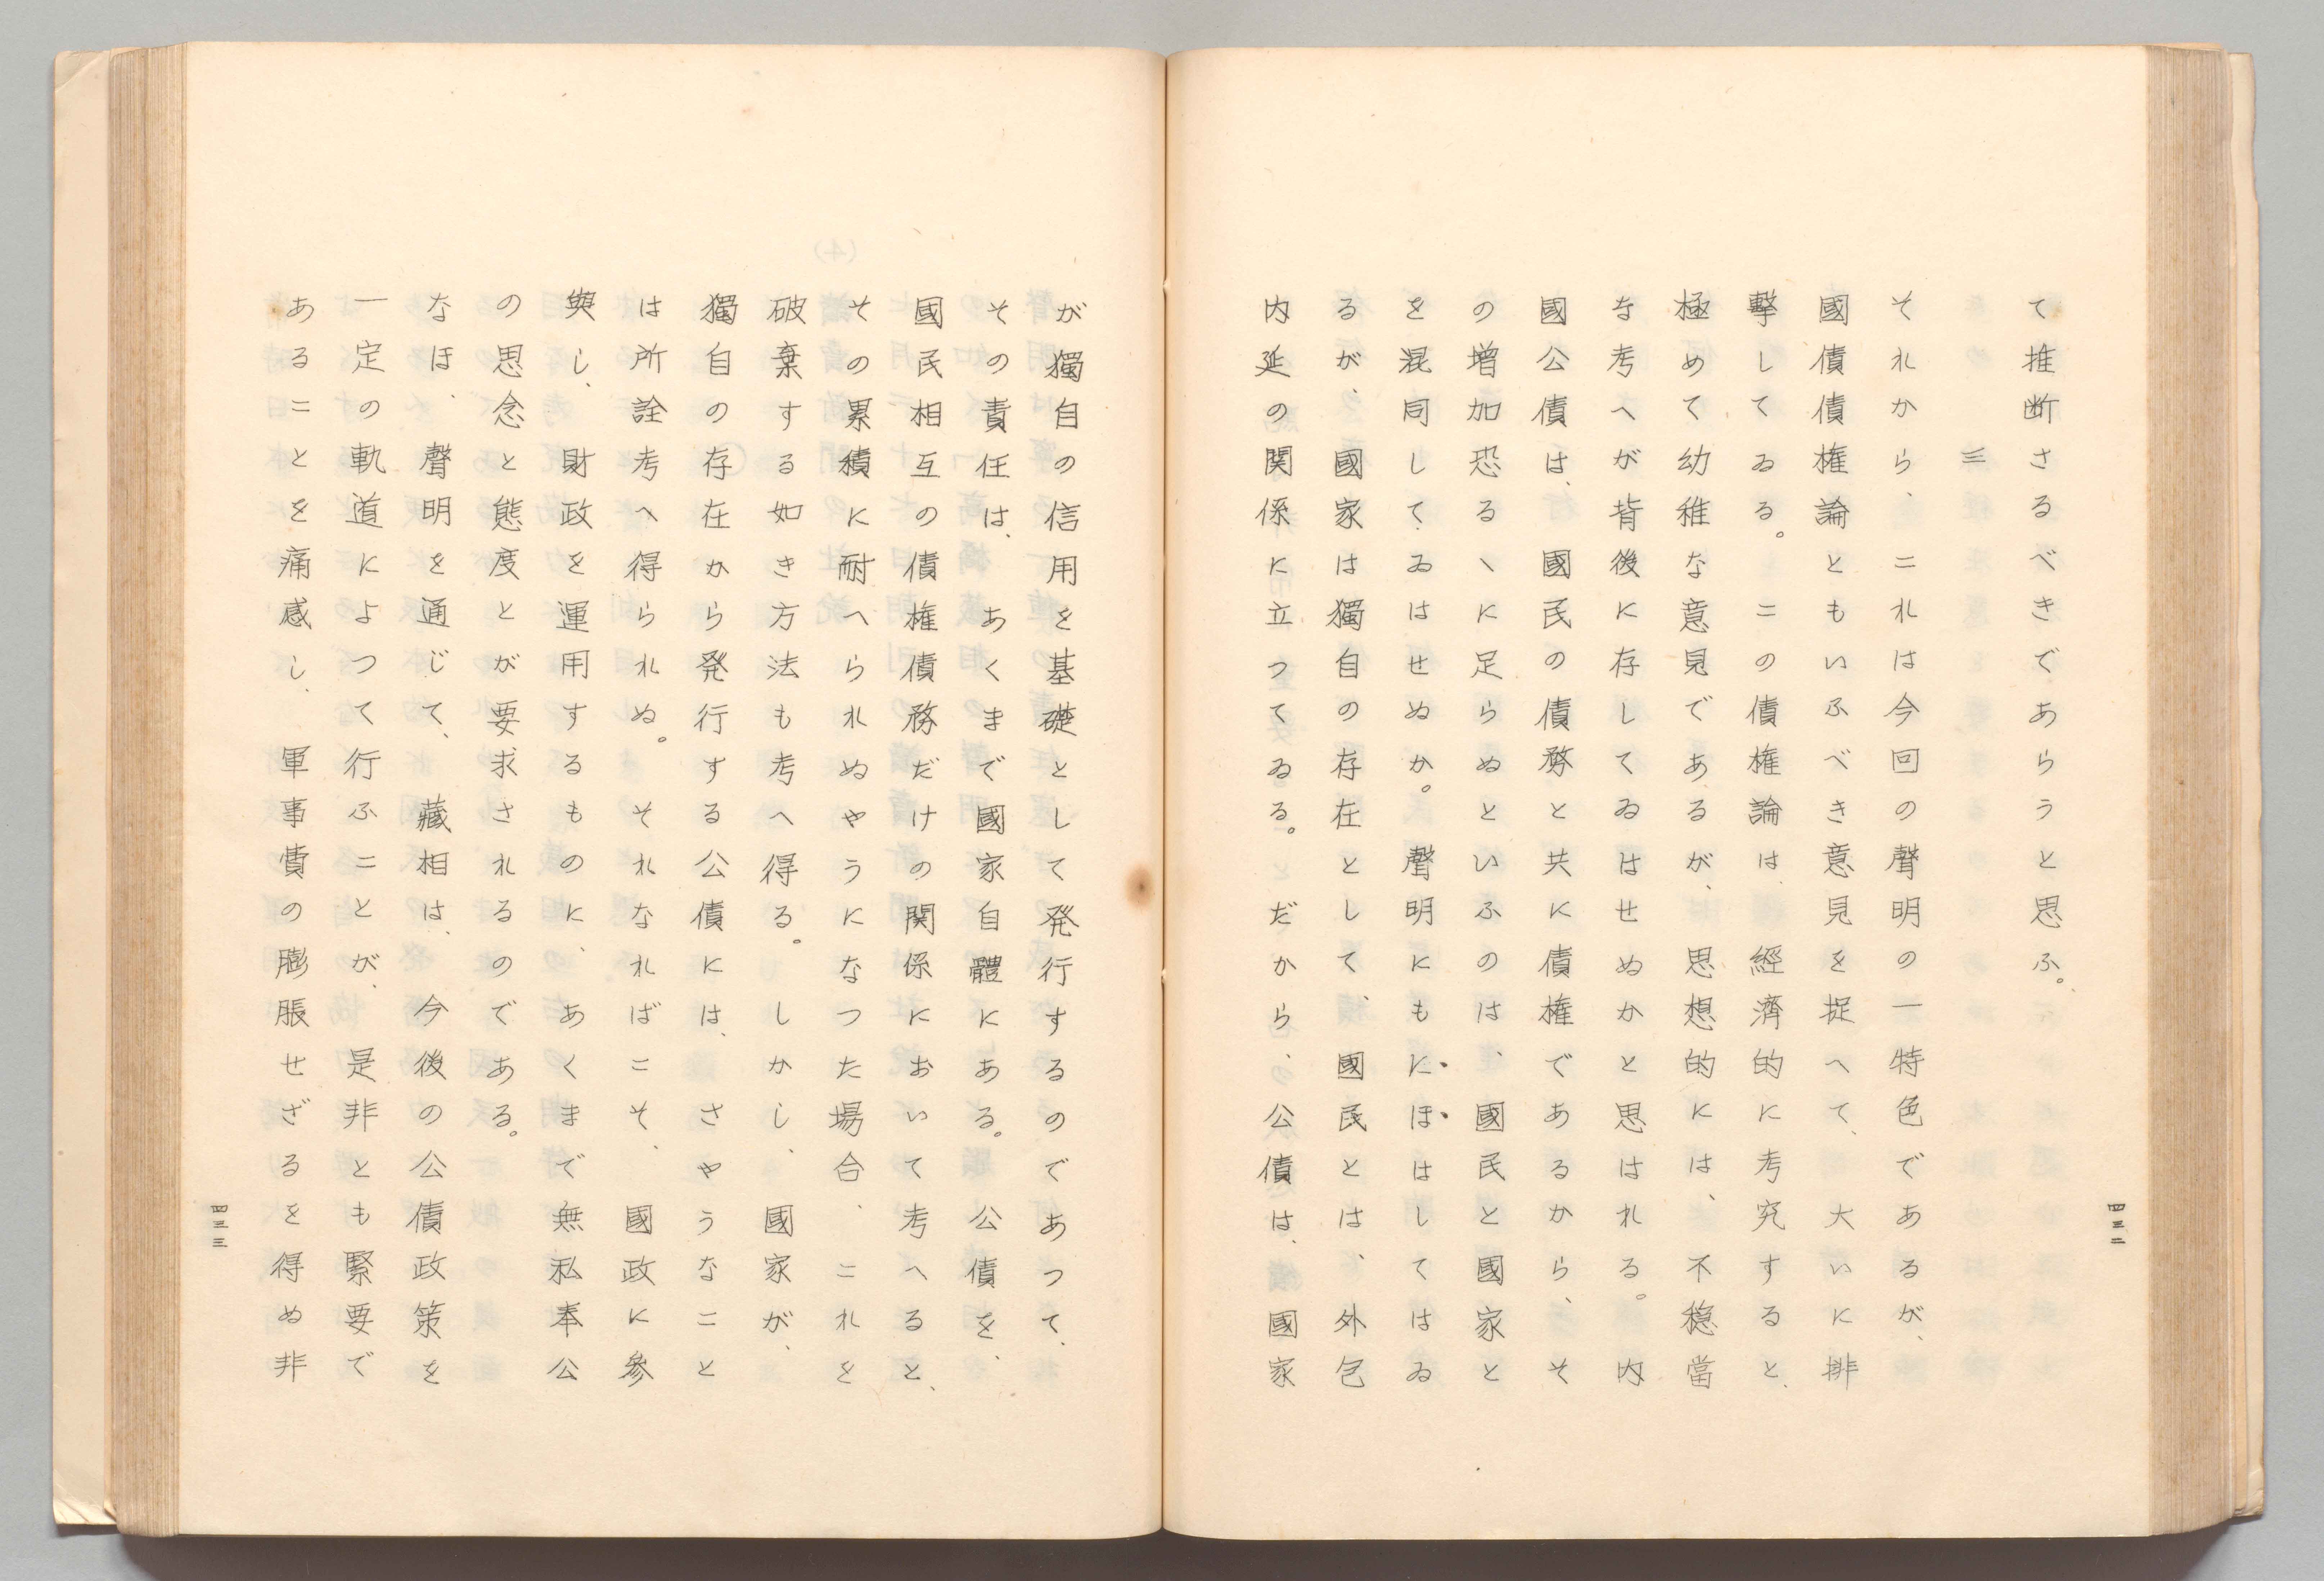 て推断さるべきであらうと思ふ。
三
それから、これは今回の聲明の一特色であるが、
國債債権論ともいふべき意見を捉へて、大いに排
擊してゐる。この債権論は、經濟的に考究すると、
極めて幼稚な意見であるが、思想的には、不穏當
な考へが背後に存してゐはせぬかと思はれる。内
國公債は、國民の債務と共に債権であるから、そ
の増加恐るゝに足らぬといふのは、國民と國家と
を混同して、ゐはせぬか。聲明にもにほはしてはゐ
るが、國家は獨自の存在として、國民とは、外包
内延の関係に立つてゐる。だから、公債は、國家
四三二
が獨自の信用を基礎として発行するのであつて、
その責任は、あくまで國家自體にある。公債を、
國民相互の債権債務だけの関係において考へると、
その累積に耐へられぬやうになつた場合、これを
破棄する如き方法も考へ得る。しかし、國家が、
獨自の存在から発行する公債には、さやうなこと
は所詮考へ得られぬ。それなればこそ、國政に參
與し、財政を運用するものに、あくまで無私奉公
の思念と態度とが要求されるのである。
なほ、聲明を通じて、藏相は、今後の公債政策を
一定の軌道によつて行ふことが、是非とも緊要で
あることを痛感し、軍事費の膨脹せざるを得ぬ非
四三三